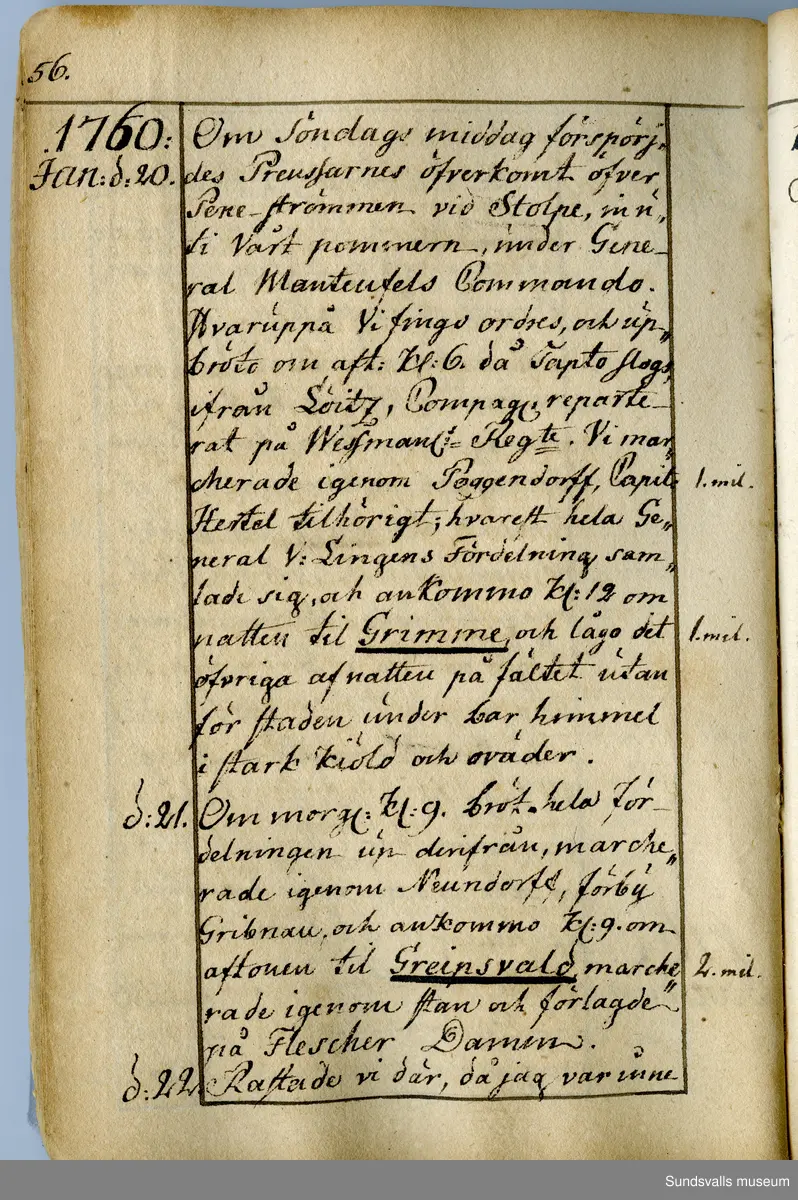 56.
1760:
Jan: d: 20.
Om Söndags middag förspörj„
des Preussarnes öfverkomt öfver
Pene-strömmen vid Stolpe, inn„
ti Vårt pommern, under Gene-
ral Manteufels Commando.
Hvaruppå Vi fings ordres, och up„
bröto om aft: Kl: 6. då Tapto slogs,
ifrån Loitz, reparte-
rat på Regte. Vi mar„
cherade igenom Poggendorff, Capit:
1. mil.
Hertel tilhörigt; hvarest hela Ge„
neral V: Lingens Fördelning sam„
lade sig, och ankommo Kl: 12 om
natten til Grimme, och lågo det
1. mil.
öfvriga af natten på fältet utan
för staden under bar himmel
i stark kiöld och oväder.
d: 21.
Om morg: Kl: 9. bröt hela för-
delningen up derifrån, marche„
rade igenom Neundorff, förbÿ
Gribnau, och ankommo Kl: 9. om
aftonen til Greipsvald, marche„
2. mil.
rade igenom stan och förlagde
på Flescher Damm.
d: 22.
Rastade vi där, då jag var inne
Sundsvalls museum